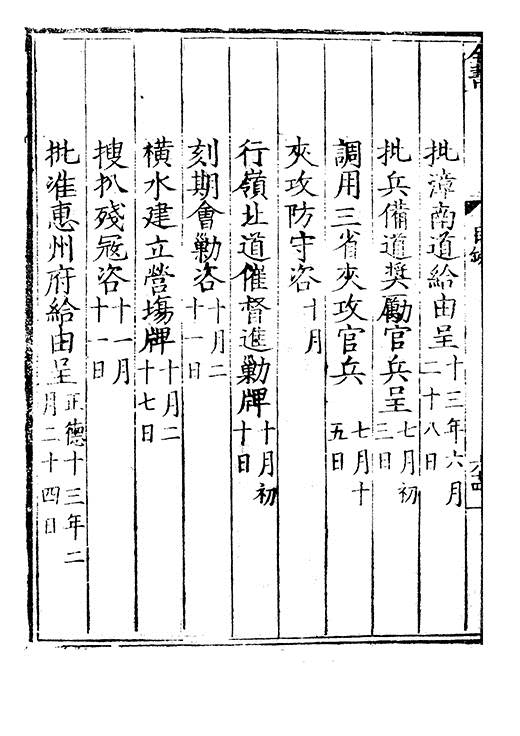 批漳南道給由呈十三年六月二十八日
批兵備道奬勵官兵呈七月初三日
調用三省夾攻官兵七月十五日
夾攻防守咨十月
行嶺北道催督進勦牌十月初十日
刻期會勦咨十月二十一日
橫水建立營塲牌十月二十七日
搜扒殘寇咨十一月十一日
批准惠州府給由呈正德十三年二月二十四日